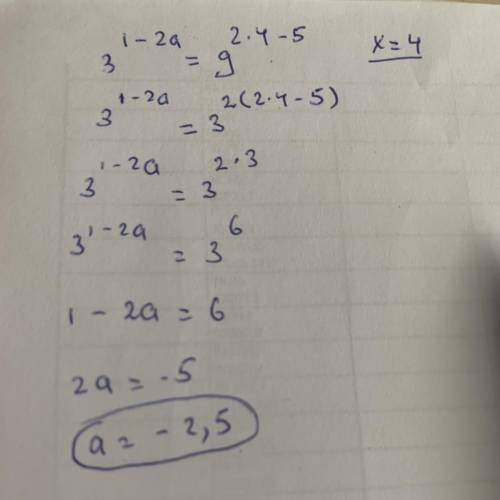 3^{1-2a} = 9^{2·4-5} x=4
3^{1-2a} = 3^{2(2·4-5)}
3^{1-2a} = 3^{2·3}
3^{1-2a} = 3^{6}
1-2a = 6
2a = -5
a = -2,5